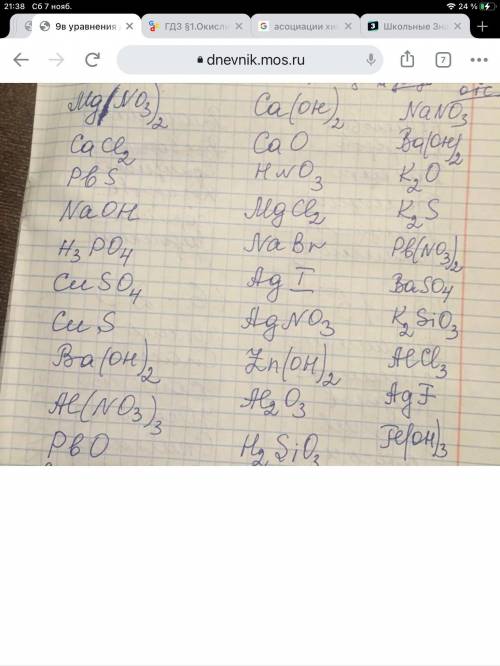 21:38 Сб 7 нояб. 24 %
9в уравнения
ГДЗ §1.Окисли
асоциации хим
Школьные Зна
dnevnik.mos.ru 7
Mg(NO3)2 Ca(OH)2 NaNO3
CaCl2 CaO Ba(OH)2
PbS HNO3 K2O
NaOH MgCl2 K2S
H3PO4 NaBr Pb(NO3)2
CuSO4 AgI BaSO4
CuS AgNO3 K2SiO3
Ba(OH)2 Zn(OH)2 AlCl3
Al(NO3)3 Al2O3 AgF
PbO H2SiO3 Fe(OH)3